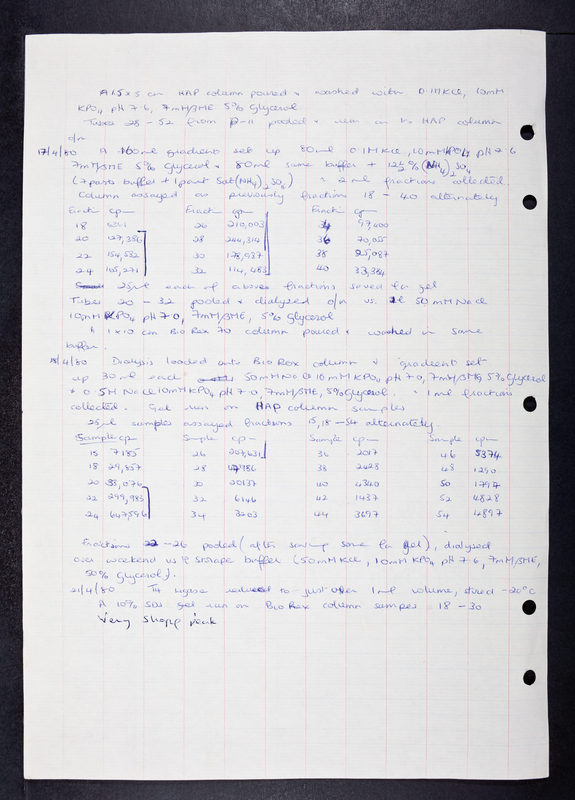 A 1.5 x 5 cm HAP column poured & washed with 0.1M KCl, 10mM
KPO4 pH 7.6, 7mM βME 5% Glycerol
Tubes 28 - 52 from P-11 pooled & run on to HAP column
o/n
17/4/80 A 160ml gradient set up 80ml 0.1M KCl, 10mM KPO4 pH 7.6
7mM βME 5% Glycerol & 80ml same buffer + 12½% (NH4)2SO4
(7 parts buffer + 1 part Sat (NH4)2SO4) ~ 2ml fractions collected.
Column assayed as previously fractions 18 - 40 alternately
Fraction cpm Fraction cpm Fraction cpm
18 6341 26 210,003 34 97,400
20 127,386 28 244,314 36 70,055
22 154,532 30 178,937 38 25,087
24 165,271 32 114,483 40 33,384
25μl each of above fractions saved for gel
Tubes 20 - 32 pooled & dialyzed o/n vs. 2l 50mM NaCl
10mM KPO4 pH 7.0, 7mM βME, 5% Glycerol
A 1 x 10 cm BioRex 70 column poured & washed in same
buffer.
18/4/80 Dialysis loaded onto BioRex column & gradient set
up 30ml each 50mM NaCl 10mM KPO4 pH 7.0, 7mM βME, 5% Glycerol
& 0.5M NaCl 10mM KPO4 pH 7.0, 7mM βME, 5% Glycerol. ~ 1ml fractions
collected. Gel run on HAP column samples
25μl samples assayed fractions 15, 18 - 54 alternately
Sample cpm Sample cpm Sample cpm Sample cpm
15 7185 26 207,631 36 2017 46 5374
18 29,857 28 42986 38 2628 48 1290
20 33,076 30 20137 40 4340 50 1794
22 299,983 32 6146 42 1437 52 4828
24 647,596 34 3203 44 3697 54 12897
Fractions 22 - 26 pooled (after saving some for gel), dialysed
over weekend vs storage buffer (50mM KCl, 10mM KPO4 pH 7.6, 7mM βME,
50% glycerol).
21/4/80 T4 ligase reduced to just over 1ml volume, stored -20°C
A 10% SDS gel run on BioRex column samples 18 - 30
Very sharp peak